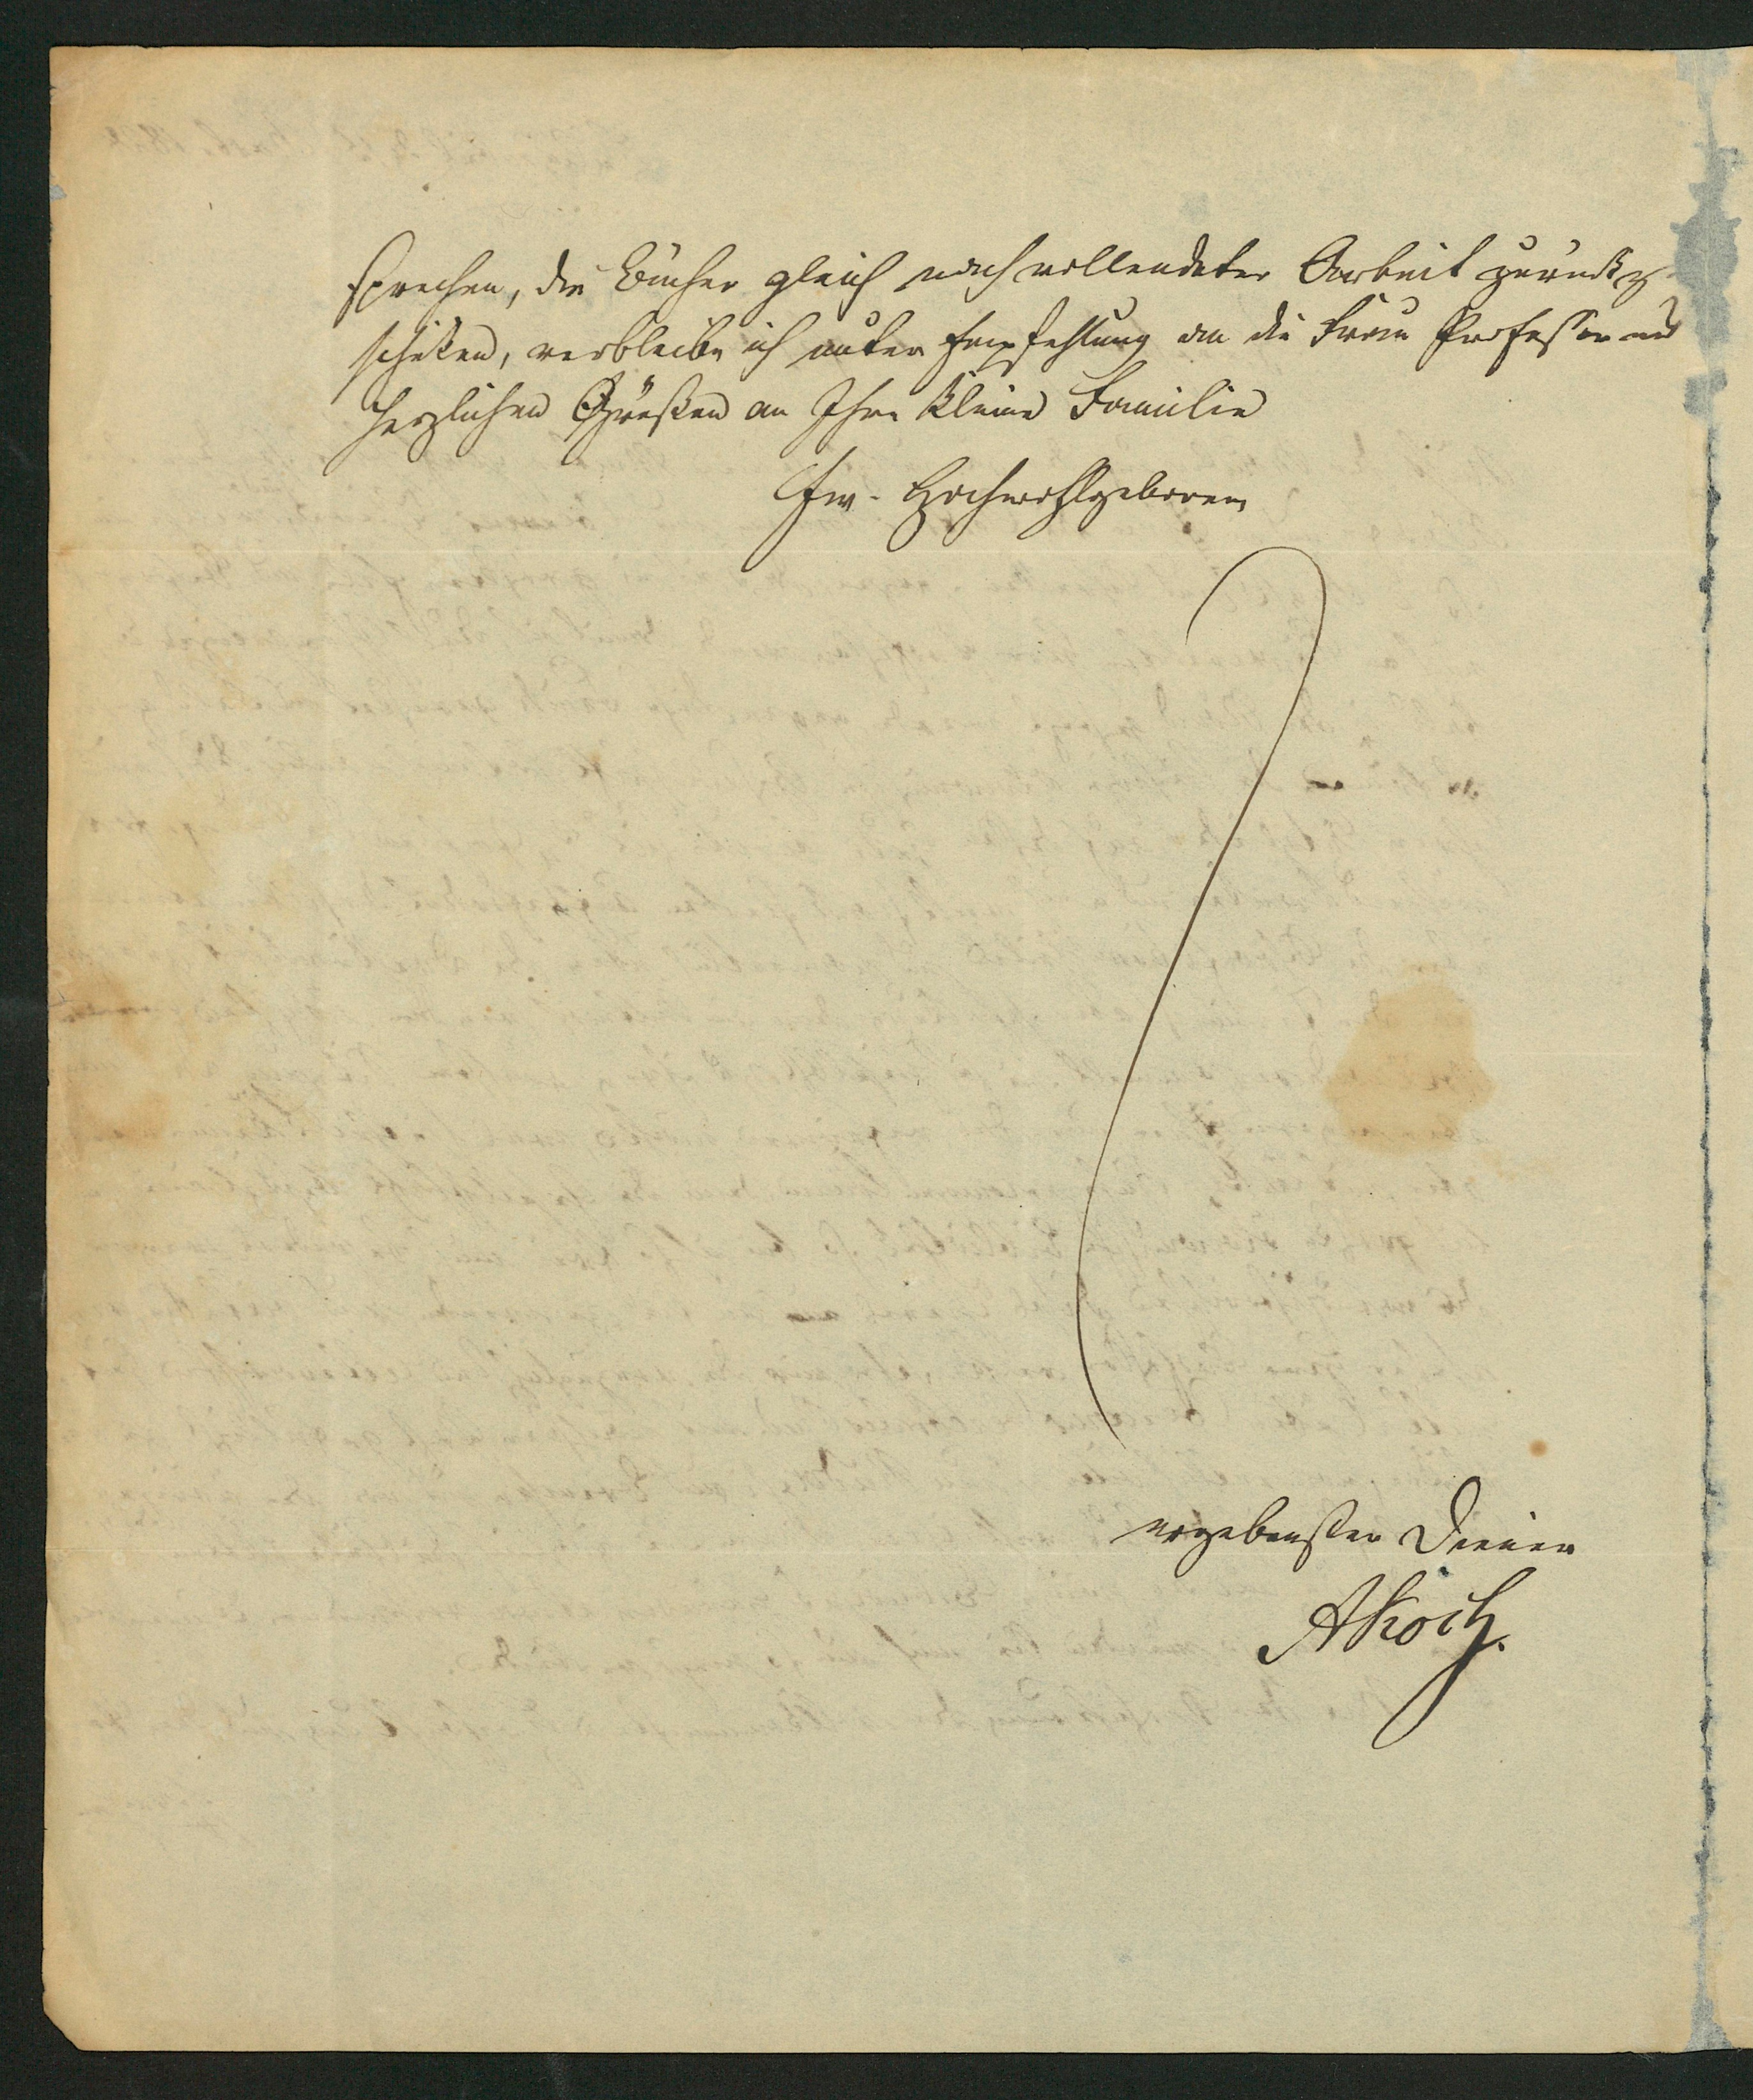 sprechen, die Bücher gleich nach vollendeter Arbeit zurück z
schiken, verbleibe ich unter Empfehlung an die Frau Professor und
herzlichen Grüßen an Ihre kleine Familie
Ew. Hochwohlgeboren
ergebenster Diener
AKoch.